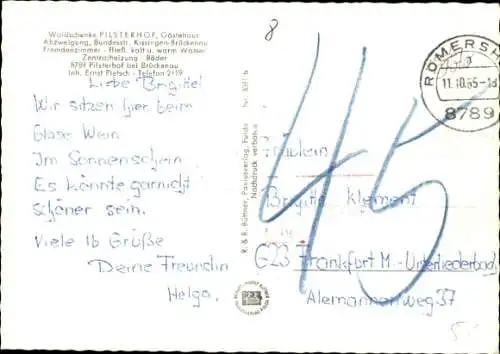 Waldschenke PILSTERHOF, Gästehaus
Abzweigung, Bundesstr. Kissingen-Brückenau
Fremdenzimmer - Fließ. kalt u. warm Wasser
Zentralheizung Bäder
8789 Pilsterhof bei Brückenau
Inh. Ernst Pletsch - Telefon 2119
Liebe Brigitte!
Wir sitzen hier beim
Glase Wein
Im Sonnenschein
Es könnte garnicht
schöner sein.
Viele lb Grüße
Deine Freundin
Helga.
R. & R. Büttner, Panoverlag, Fulda
Nachdruck verboten
8
RÖMERSH
11.10.65-18
8789
45
Fräulein
Brigitte Klement
623 Frankfurt M.-Unterliederbad
Alemannenweg 37